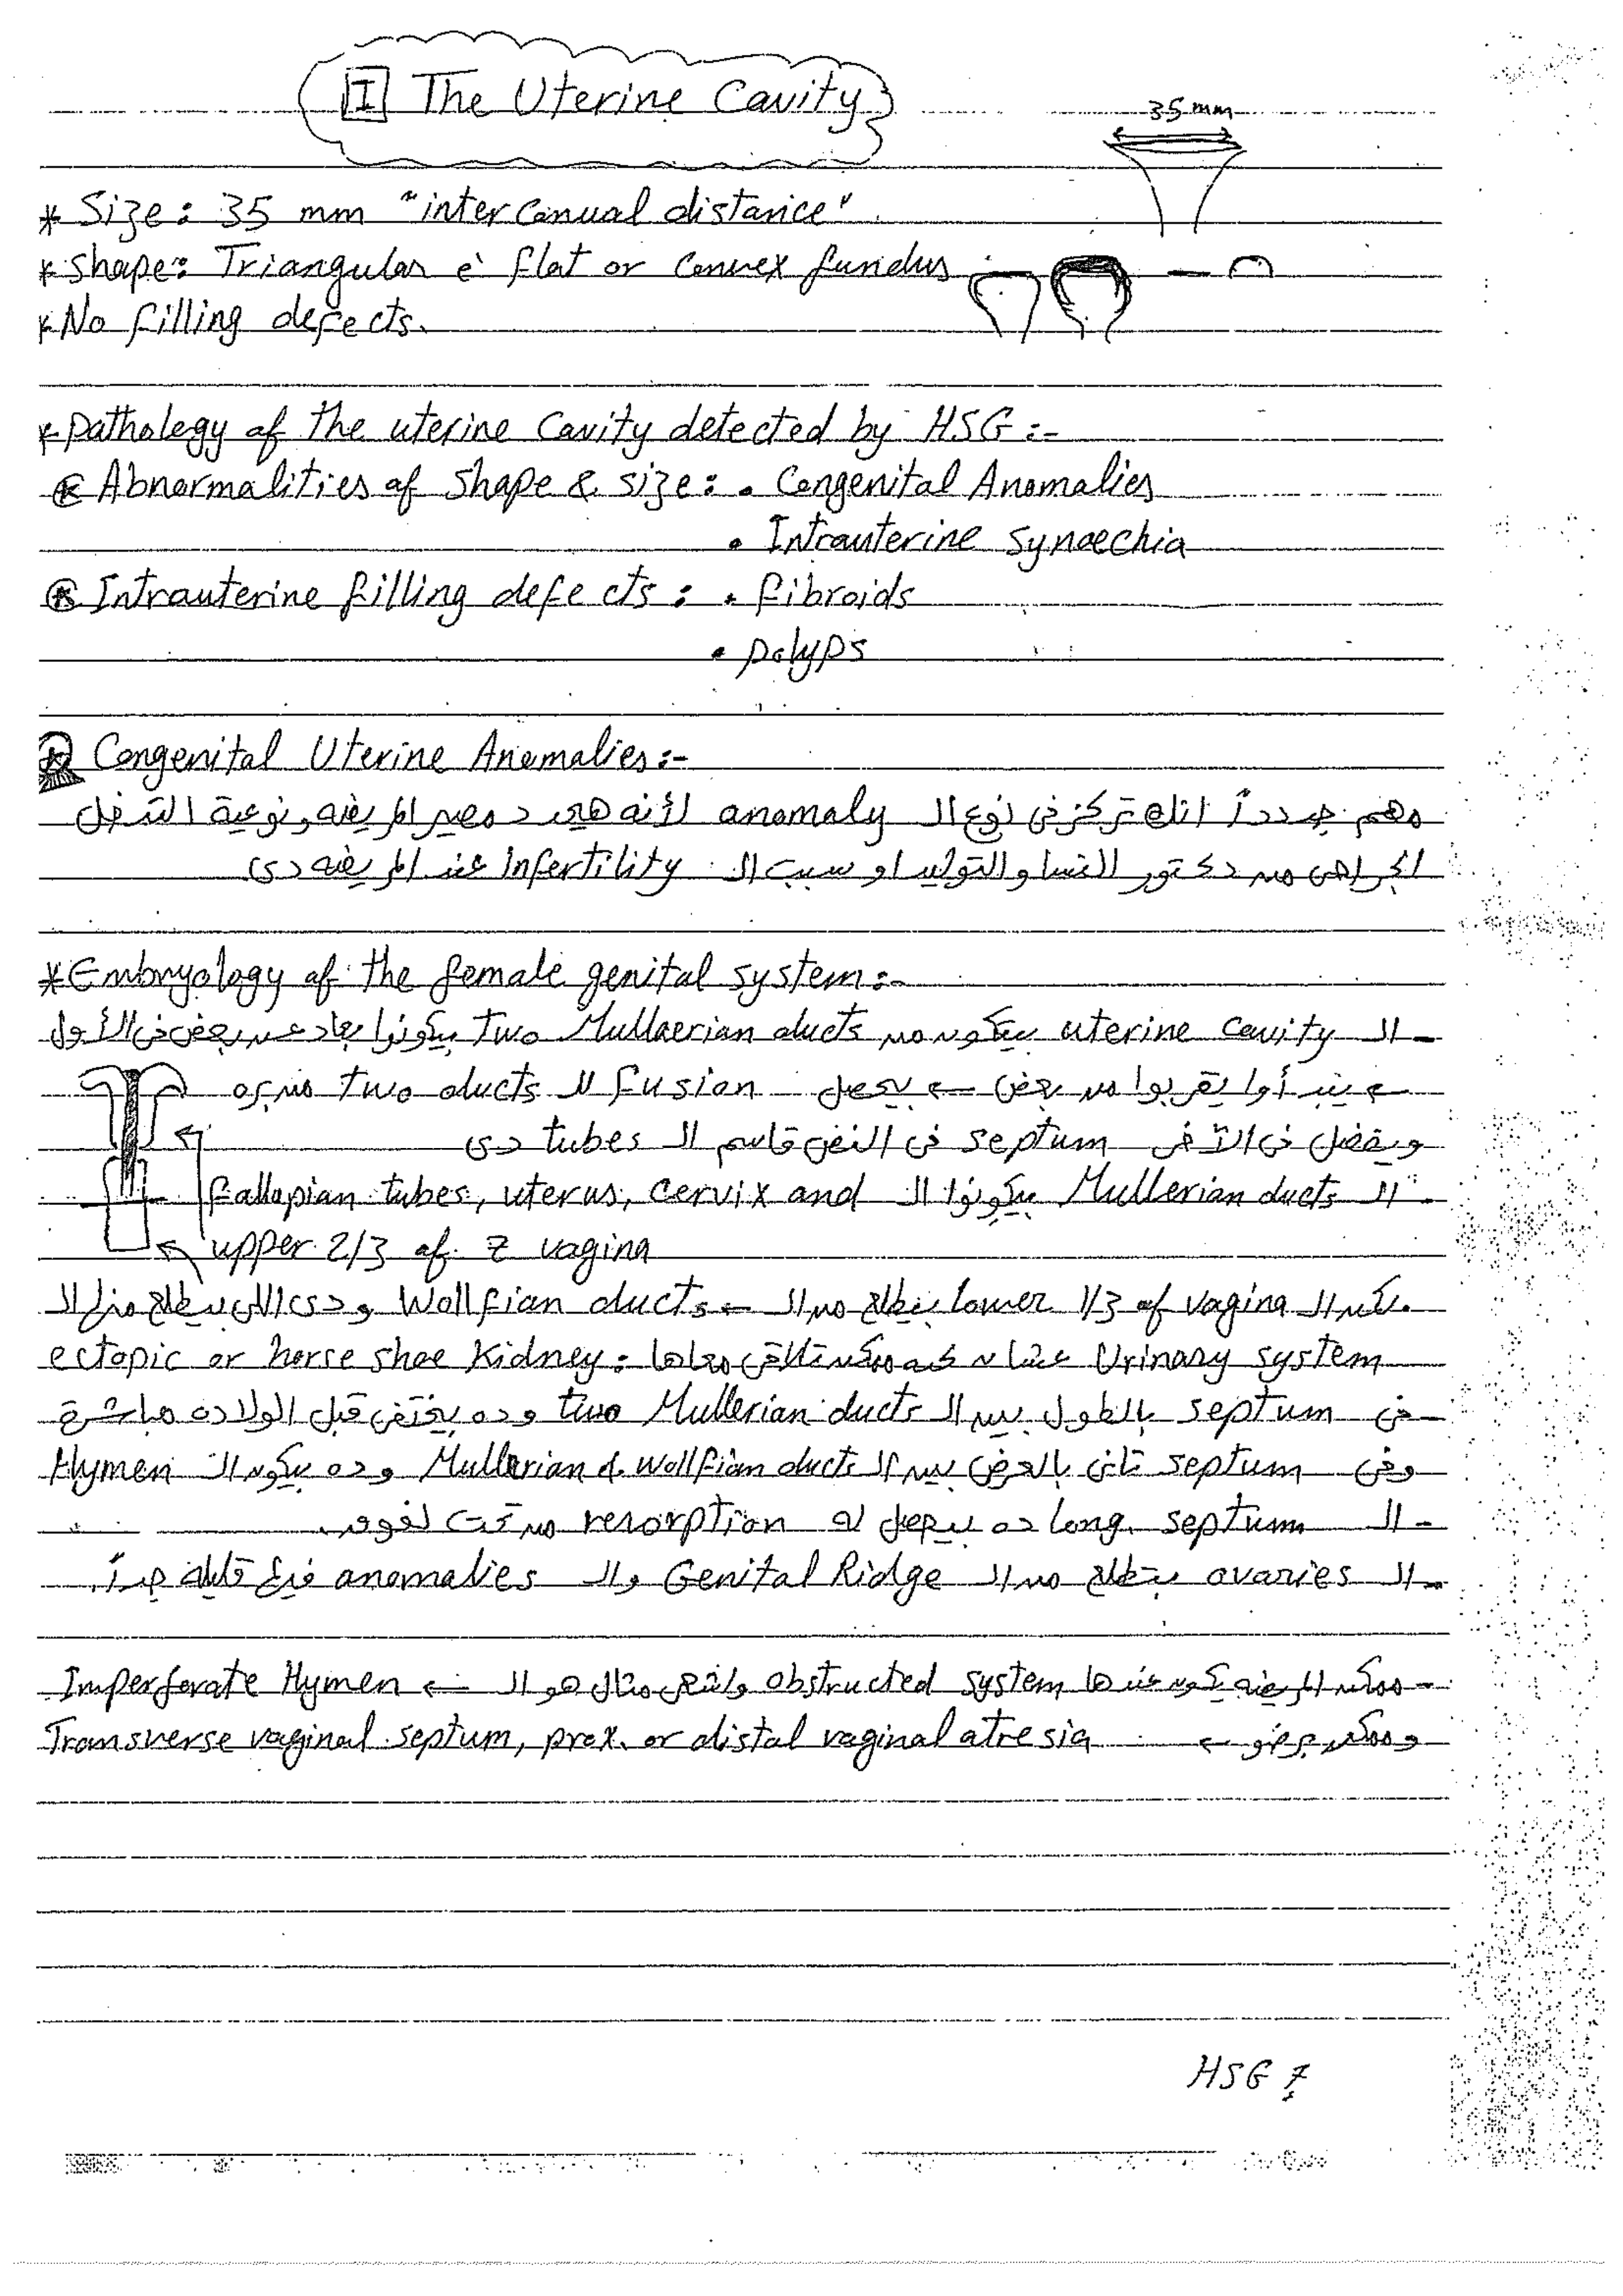 I The Uterine Cavity
35 mm
* Size: 35 mm "inter canual distance"
* shape: Triangular è flat or convex fundus
* No filling defects.
* pathology of the uterine cavity detected by HSG :-
* Abnormalities of shape & size: • Congenital Anomalies
• Intrauterine synaechia
* Intrauterine filling defects: • fibroids
• polyps
* Congenital Uterine Anomalies:-
مهم جدداً انك تركز في نوع الـ anomaly لأنه هيحدد مصير المريضه ونوعية التدخل
الجراحي من دكتور النسا والتوليد او سبب الـ Infertility عند المريضه دي
* Embryology of the female genital system:-
- الـ uterine cavity بيتكون من two Mullaerian ducts بيكونوا بعاد عن بعض في الأول
← يبدأوا يقربوا من بعض ← يحصل fusion للـ two ducts
ويفضل في الآخر septum في النص قاسم الـ tubes دي
- الـ Mullerian ducts بيكونوا الـ fallopian tubes, uterus, cervix and
upper 2/3 of z vagina
لكن الـ lower 1/3 of vagina بيطلع من الـ ← Wollfian ducts ودي اللي بيطلع منها الـ
Urinary system عشان كده ممكن تلاقي معاها: ectopic or horse shoe Kidney
- في septum بالطول بين الـ two Mullerian ducts وده يختفي قبل الولاده مباشرة
وفي septum تاني بالعرض بين الـ Mullerian & Wollfian ducts وده بيكون الـ Hymen
- الـ long. septum ده بيحصل له resorption من تحت لفوق.
- الـ ovaries بتطلع من الـ Genital Ridge والـ anomalies فيها قليلة جداً.
- ممكن المريضه يكون عندها obstructed system واشهر مثال هو الـ ← Imperforate Hymen
وممكن برضو ← Transverse vaginal septum, prox. or distal vaginal atresia
HSG 7